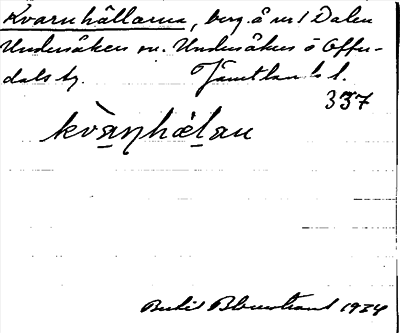 Kvarnhällarna, berg. å nr 1 Dalen
Undersåkers sn. Undersåkers o Offer-
dals tg. Jämtlands l.
337
kvàṇhæ̀ḷaṇ
Bertil Blomstrand 1934